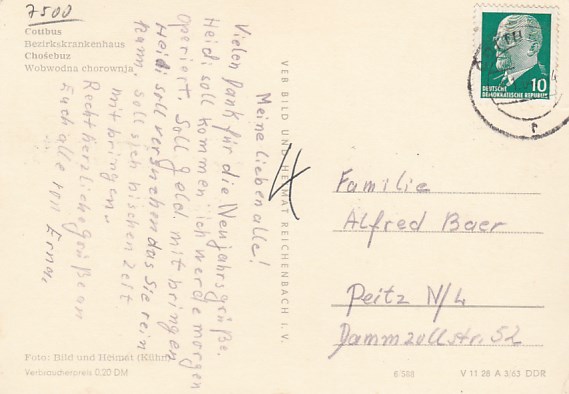 7500
Cottbus
Bezirkskrankenhaus
Chośebuz
Wobwodna chorownja
Meine lieben alle!
Vielen Dank für die Neujahrsgrüße.
Heidi soll kommen ich werde morgen
operiert. Soll Geld mit bringen
Heidi soll versuchen das Sie rein
kann. soll sich bischen Zeit
mitbringen.
Recht herzliche Grüße an
Euch alle von Erna.
Foto: Bild und Heimat (Kühn)
Verbraucherpreis 0,20 DM
VEB BILD UND HEIMAT REICHENBACH I. V.
DEUTSCHE
DEMOKRATISCHE REPUBLIK
10
Familie
Alfred Baer
Peitz N/L
Dammzollstr. 52
6/588
V 11 28 A 3/63 DDR